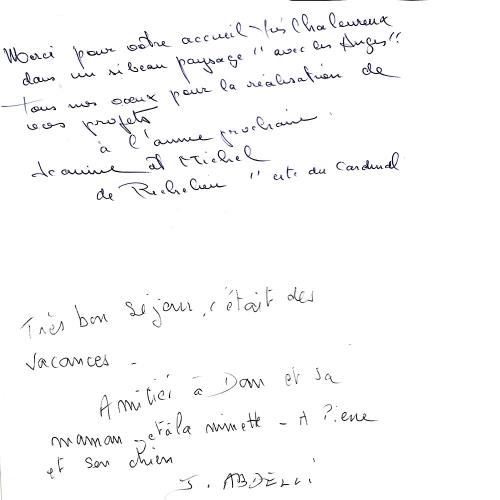 Merci pour votre accueil très Chaleureux
dans un si beau paysage "avec les Anges"!!
tous nos voeux pour la réalisation de
vos projets
à l'année prochaine.
Jeanine et Michel
de Richelieu "cité du Cardinal
Très bon séjour, c'était des
vacances -
Amitiés à Dan et sa
maman - et à la minette - A Pierre
et son chien
J. ABDELLI